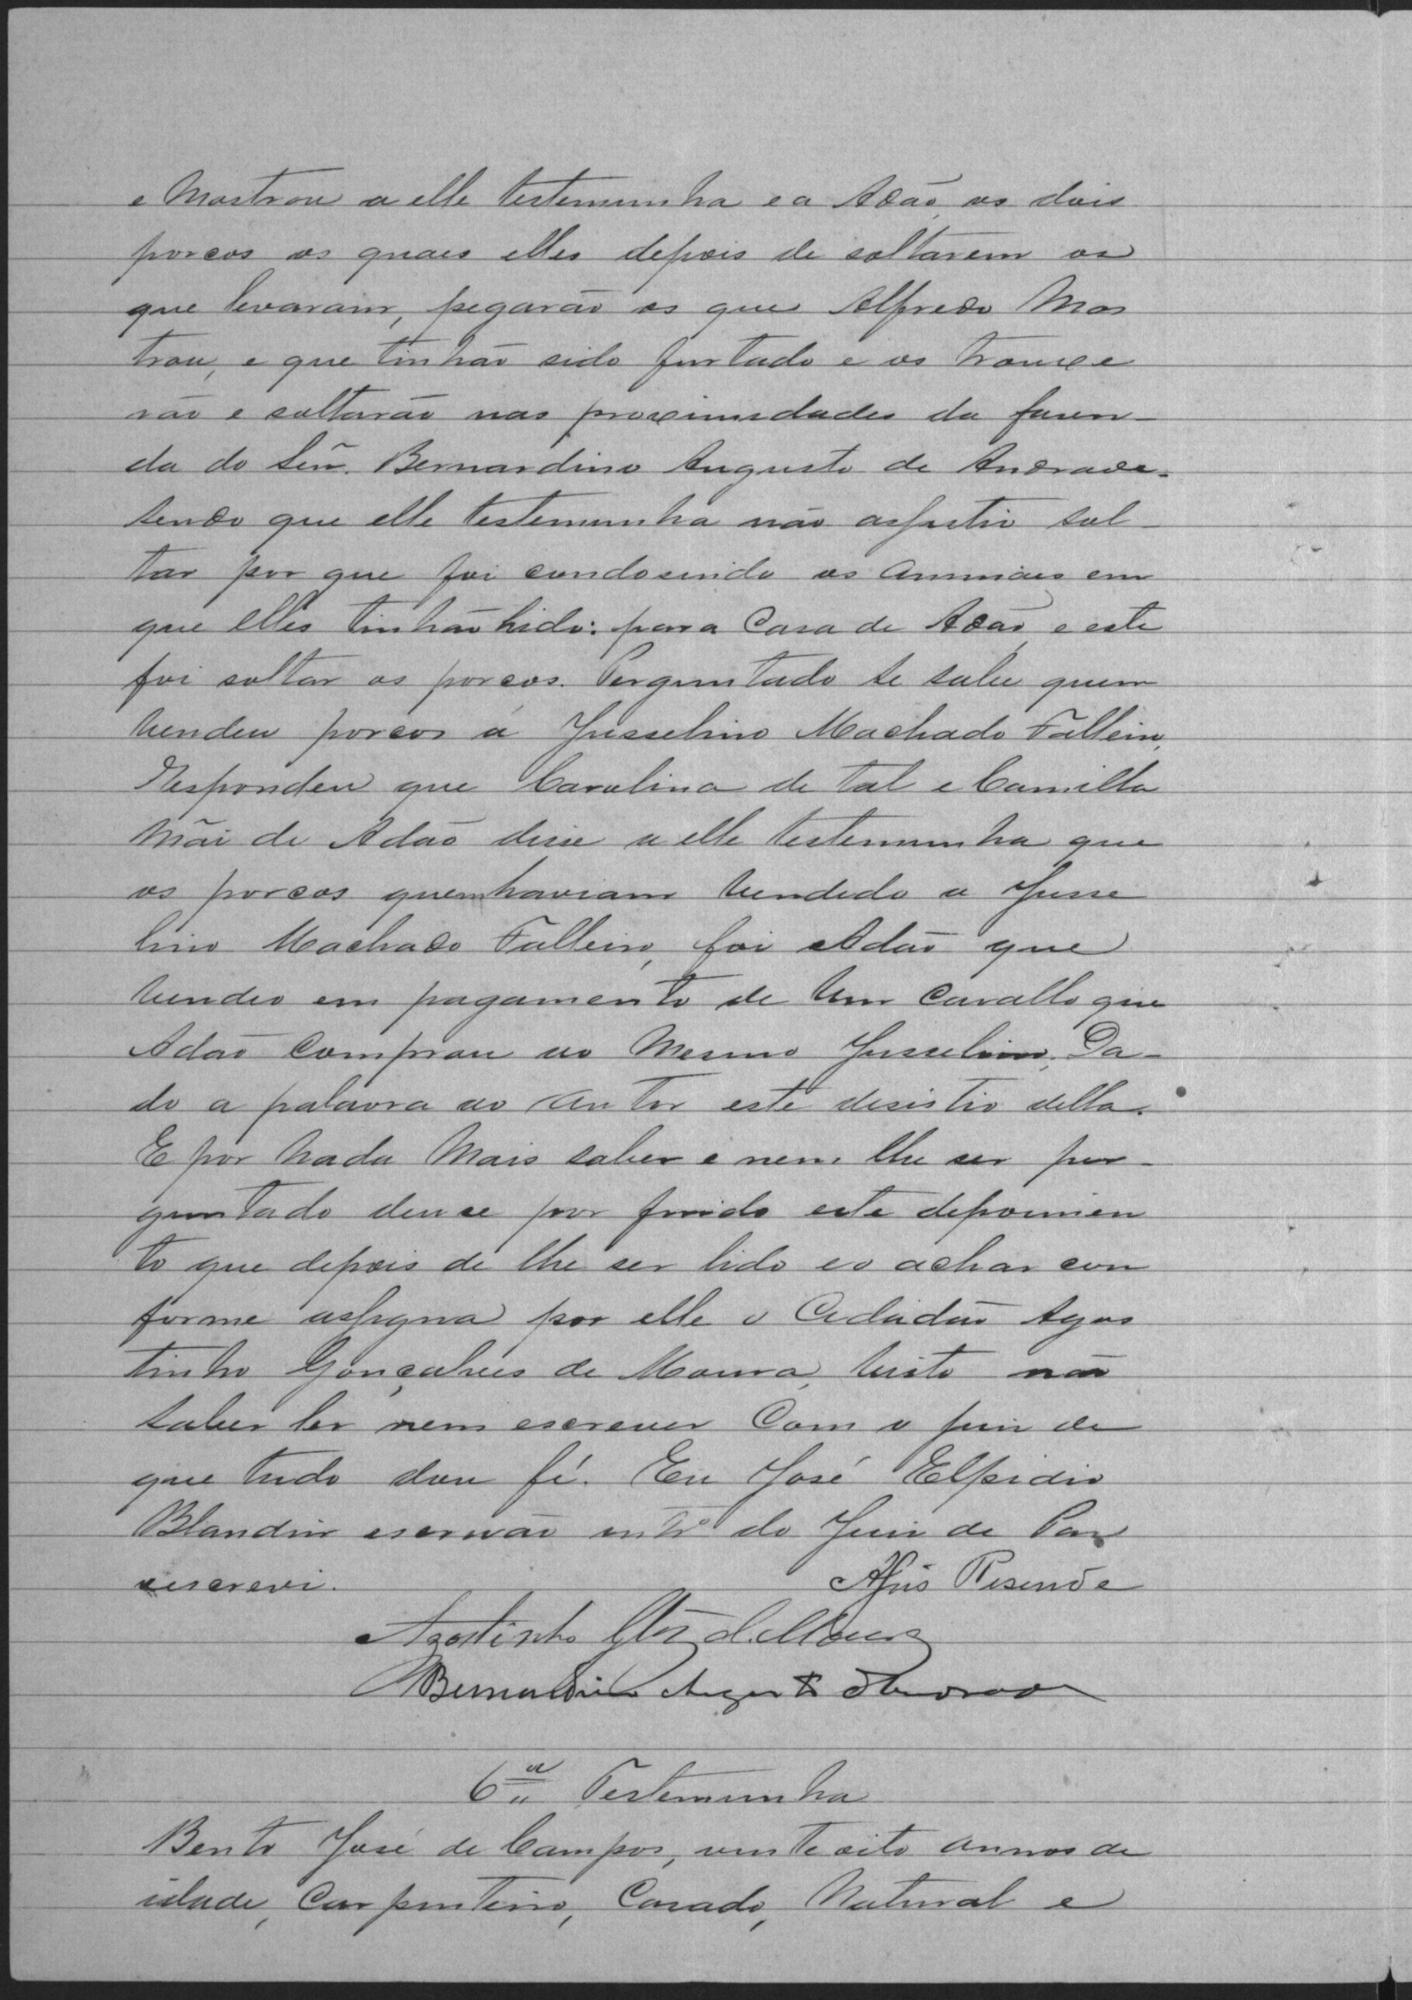 e Mostrou a elle testemunha e a Adão, os dois
porcos os quaes elles depois de soltarem os
que levaram, pegarão os que Alfredo Mos
trou, e que tinhão sido furtado e os trouxe
rão e soltarão nas proximidades da fasen-
da do Señr. Bernardino Augusto de Andrade-
sendo que elle testemunha não assistio sol-
tar por que foi condosindo os animaes em
que elles tinhão hido: para Casa de Adão, e este
foi soltar os porcos. Perguntado se sabe quem
vendeu porcos á Jusselino Machado Falleiro,
Respondeu que Carolina de tal e Camilla
Mãi de Adão disse a elle testemunha que
os porcos quem haviam vendido a Jusse
lino Machado Falleiro, foi Adão que
vendeo em pagamento de um Cavallo que
Adão Comprou ao Mesmo Jusselino. Da-
do a palavra ao autor este desistio della.
E por Nada Mais saber e nem lhe ser per-
guntado deu se por findo este depoimen
to que depois de lhe ser lido e o achar con
forme assigna por elle o Cidadão Agos
tinho Gonçalves de Moura, visto não
saber ler nem escrever Com o juis de
que tudo dou fé. Eu José Elpidio
Blandin escrivão intº do Juis de Paz
escrevi. Assis Resende
Agostinho Glz d. Moura
Bernardino Augusto d'Andrade
6ª Testemunha
Bento José de Campos, vinte oito annos de
idade, Carpinteiro, Casado, Natural e